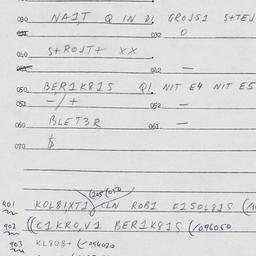 030 NA1T Q IN D; GROJS1 S+TEJ
032 0
040 S+ROJT+ XX.
042 —
050 BER1K81S Q1 NIT E4 NIT E5
051 -/+ 052 —
060 BLET3R 061 —
070 $
(205(050
901 KOL8IXT1 CLN ROB1 E150L81S
902 ((C1KRO,V1 BER1K81S (/096050
903 KL8UB+ (/094020